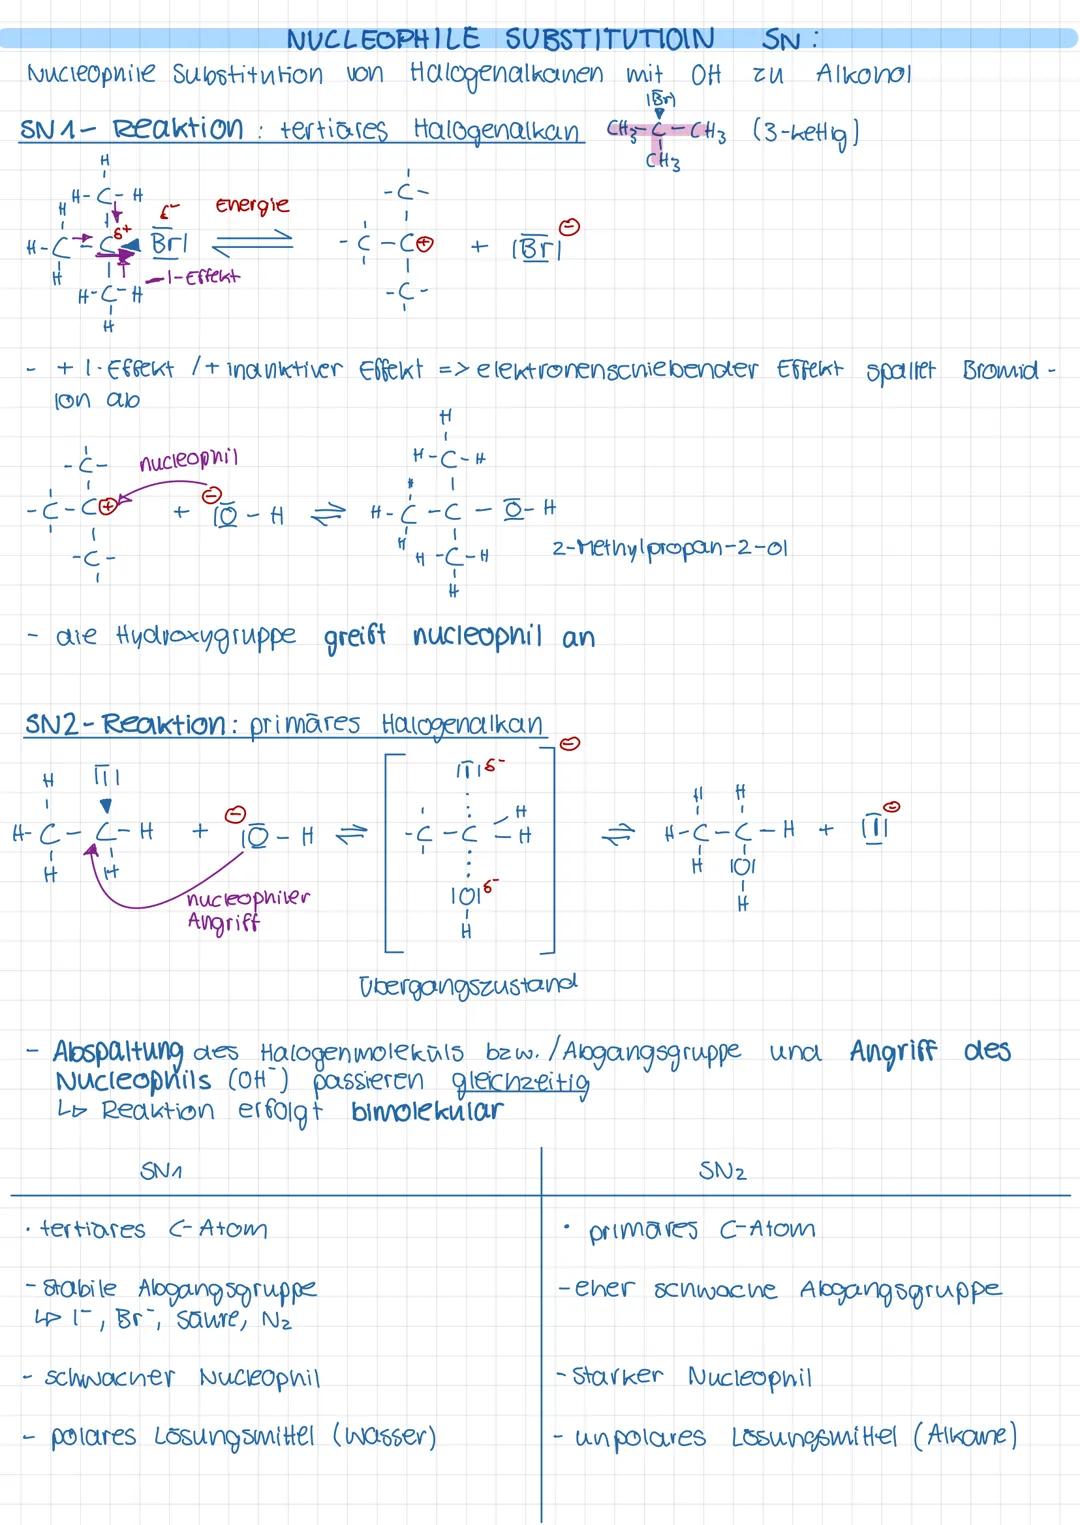 NUCLEOPHILE SUBSTITUTIOIN SN :
Nucleophile Substitution von Halogenalkanen mit OH zu Alkohol
SN1- Reaktion : tertiäres Halogenalkan CH3-C-CH3 (3-kettig)
|Br|
CH3
H
H-C-H
H
H-C-C δ+ Br| δ-
H
H-C-H
H
Energie
-I-Effekt
-C-
-C-C⊕ + |Br|⊖
-C-
- + I-Effekt /+ induktiver Effekt => elektronenschiebender Effekt spaltet Bromid-
Ion ab
-C-
nucleophil
-C-C⊕ + ⊖|O-H ⇌ H-C-C-O-H
-C-
H
H-C-H
H
H
H-C-H
H
2-Methylpropan-2-ol
- die Hydroxygruppe greift nucleophil an
SN2-Reaktion: primäres Halogenalkan
H |I|
H-C-C-H + ⊖|O-H ⇌
H H
nucleophiler
Angriff
|I| δ-
-C-C H
H
|O| δ-
H
⊖
Übergangszustand
⇌
H H
H-C-C-H + |I|⊖
H |O|
H
- Abspaltung des Halogenmoleküls bzw. /Abgangsgruppe und Angriff des
Nucleophils (OH⁻) passieren gleichzeitig
↳ Reaktion erfolgt bimolekular
SN1
SN2
· tertiäres C-Atom
· primäres C-Atom
- stabile Abgangsgruppe
↳ I⁻, Br⁻, Säure, N2
- eher schwache Abgangsgruppe
- schwacher Nucleophil
- starker Nucleophil
- polares Lösungsmittel (Wasser)
- unpolares Lösungsmittel (Alkane)